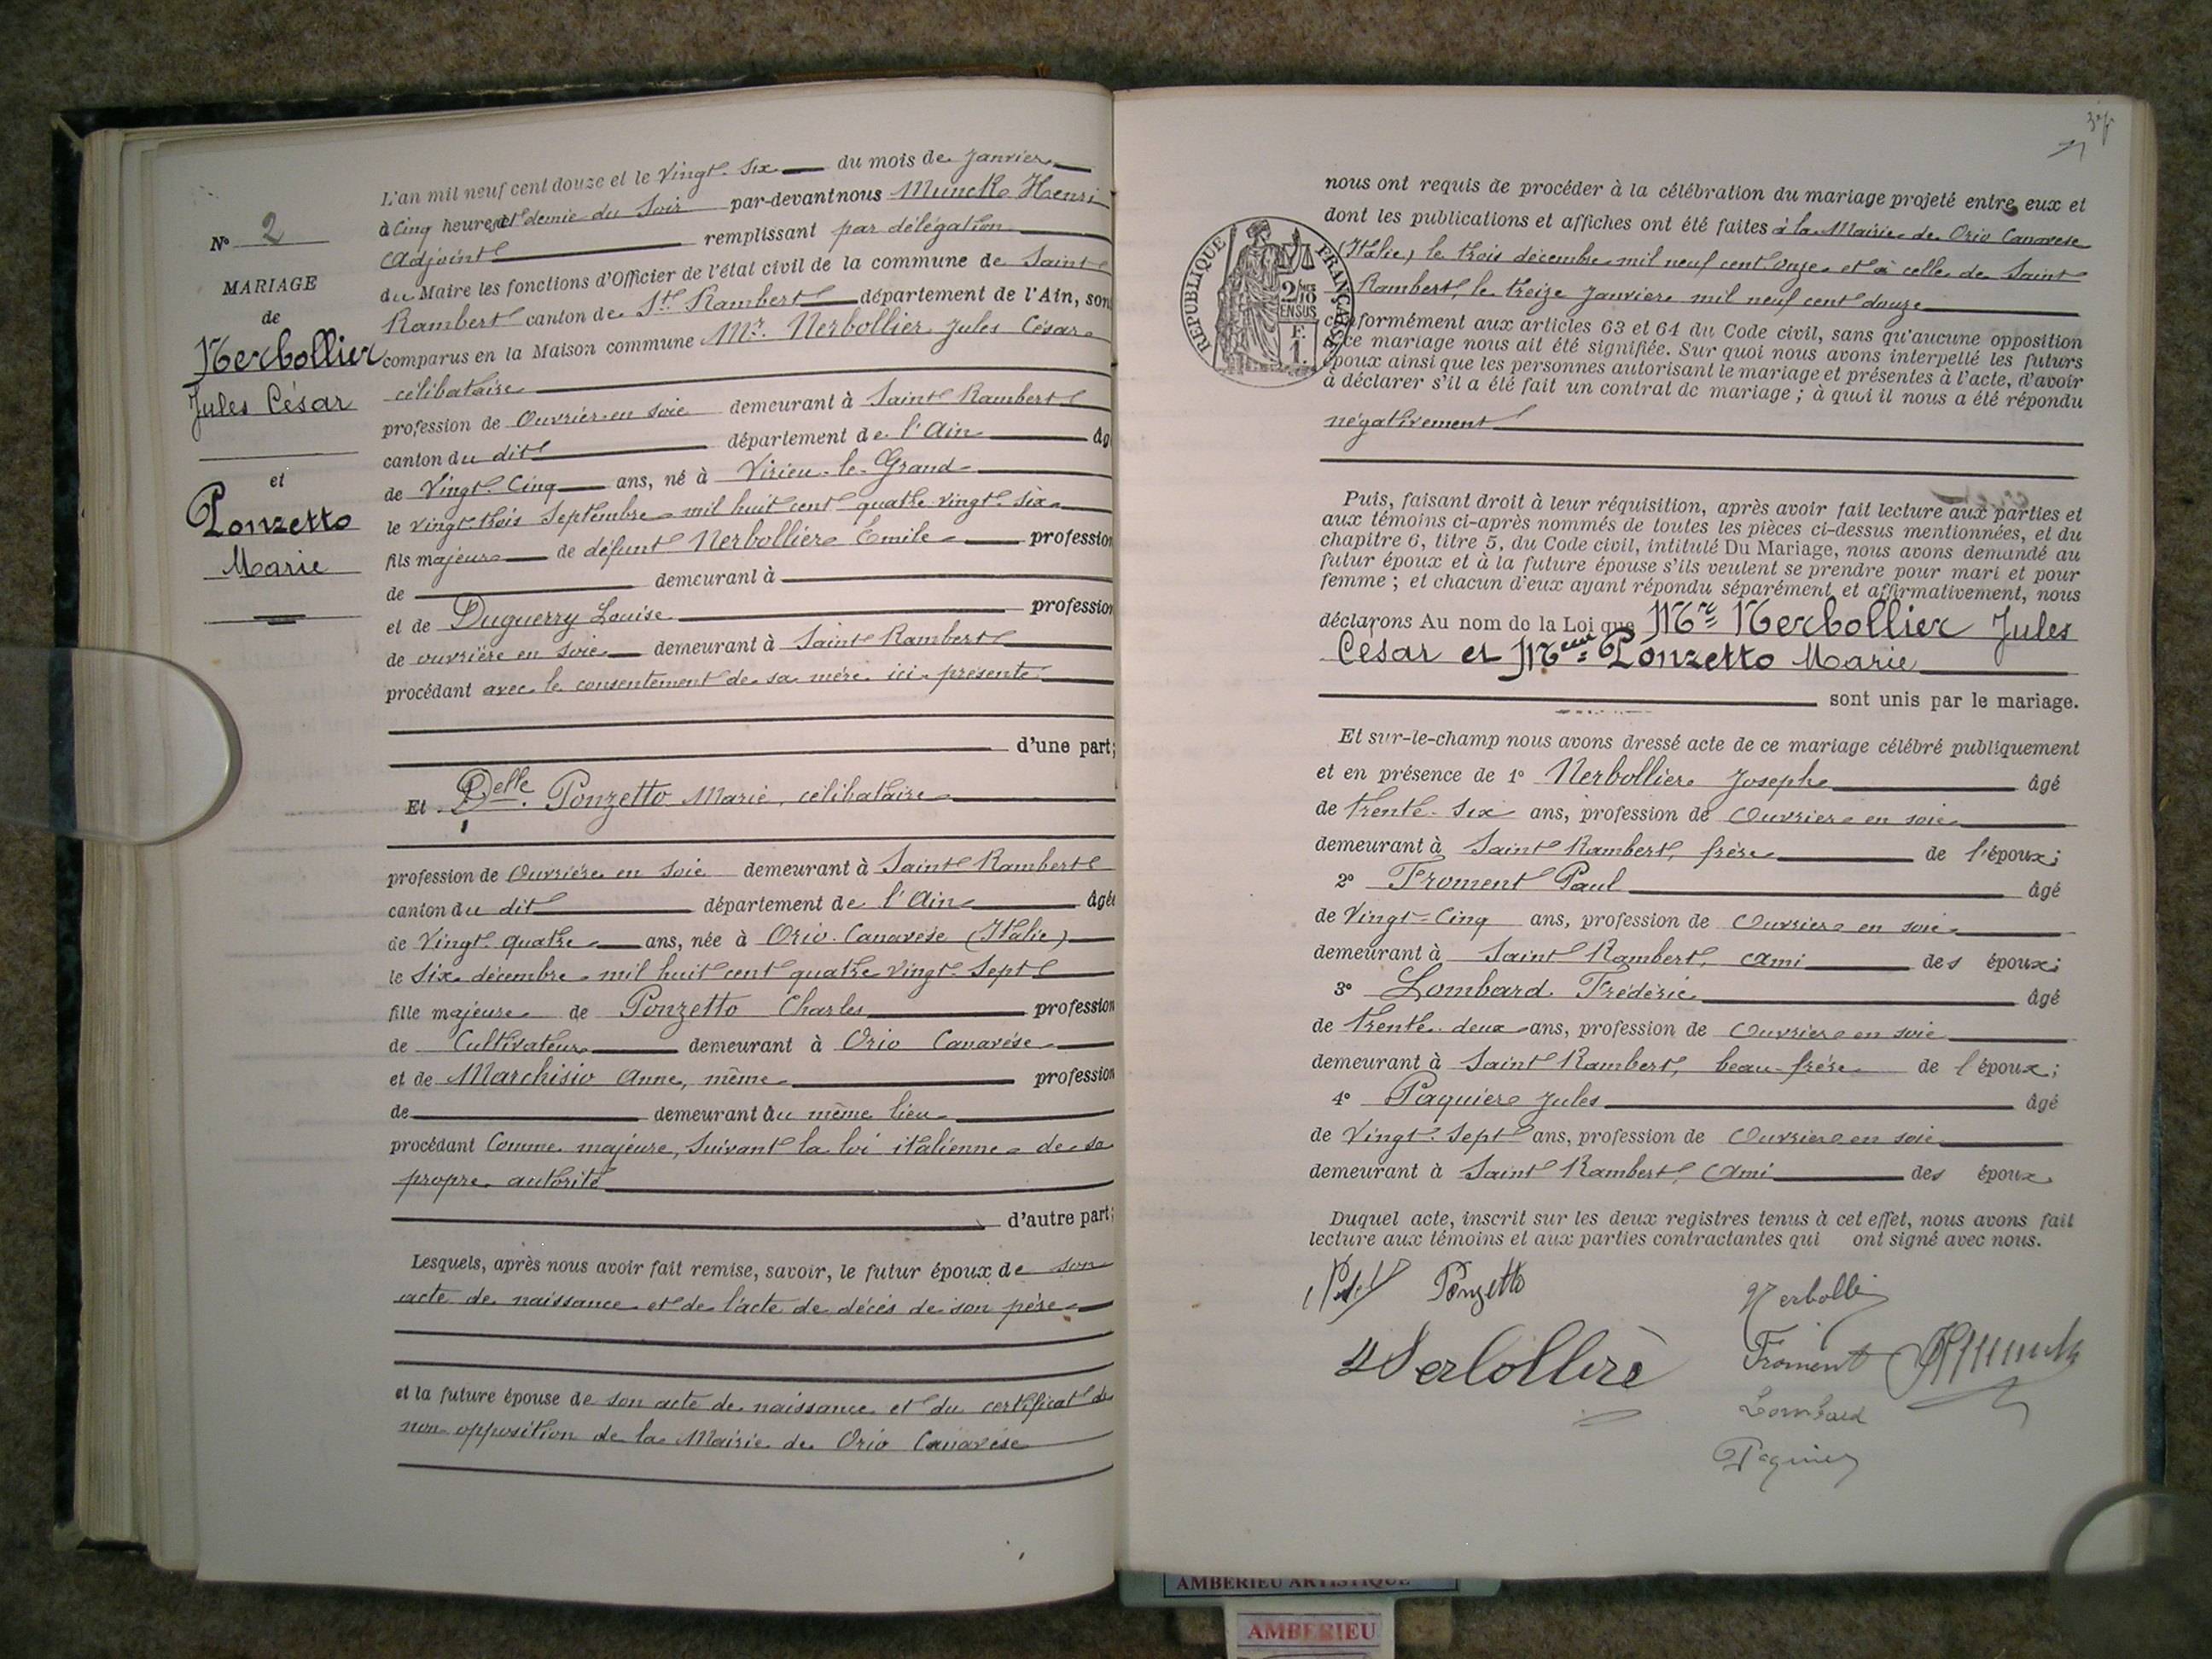 L'an mil neuf cent douze et le Vingt-Six du mois de Janvier
à Cinq heures et demie du Soir par-devant nous Munck Henri
Adjoint remplissant par délégation
du Maire les fonctions d'Officier de l'état civil de la commune de Saint
Rambert canton de St Rambert département de l'Ain, son
comparus en la Maison commune Mr. Nerbollier Jules César
célibataire
profession de Ouvrier en soie demeurant à Saint Rambert
canton du dit département de l'Ain âg
de Vingt-Cinq ans, né à Virieu-le-Grand
le vingt-trois Septembre mil huit cent quatre-vingt-six
fils majeur de défunt Nerbollier Emile profession
de demeurant à
et de Duguerry Louise profession
de ouvrière en soie demeurant à Saint Rambert
procédant avec le consentement de sa mère ici présente
d'une part;
Et Delle. Ponzetto Marie, célibataire
profession de Ouvrière en Soie demeurant à Saint Rambert
canton du dit département de l'Ain âgée
de Vingt-quatre ans, née à Orio-Canavése (Italie)
le Six décembre mil huit cent quatre vingt-Sept
fille majeure de Ponzetto Charles profession
de Cultivateur demeurant à Orio Canavése
et de Marchisio Anne, même profession
de demeurant au même lieu
procédant Comme majeure, Suivant la loi italienne de sa
propre autorité
d'autre part;
Lesquels, après nous avoir fait remise, savoir, le futur époux de son
acte de naissance et de l'acte de décès de son père
et la future épouse de son acte de naissance et du certificat de
non-opposition de la Mairie de Orio Canavése
No 2
MARIAGE
de
Nerbollier
Jules César
et
Ponzetto
Marie
nous ont requis de procéder à la célébration du mariage projeté entre eux et
dont les publications et affiches ont été faites à la Mairie de Orio Canavese
(Italie) le trois décembre mil neuf cent onze et à celle de Saint
Rambert, le treize Janvier mil neuf cent douze
conformément aux articles 63 et 64 du Code civil, sans qu'aucune opposition
à ce mariage nous ait été signifiée. Sur quoi nous avons interpellé les futurs
époux ainsi que les personnes autorisant le mariage et présentes à l'acte, d'avoir
à déclarer s'il a été fait un contrat de mariage; à quoi il nous a été répondu
négativement
REPUBLIQUE FRANÇAISE
2/10
EN SUS
F.
1.
Puis, faisant droit à leur réquisition, après avoir fait lecture aux parties et
aux témoins ci-après nommés de toutes les pièces ci-dessus mentionnées, et du
chapitre 6, titre 5, du Code civil, intitulé Du Mariage, nous avons demandé au
futur époux et à la future épouse s'ils veulent se prendre pour mari et pour
femme; et chacun d'eux ayant répondu séparément et affirmativement, nous
déclarons Au nom de la Loi que Mr Nerbollier Jules
César et Melle Ponzetto Marie
sont unis par le mariage.
Et sur-le-champ nous avons dressé acte de ce mariage célébré publiquement
et en présence de 1o Nerbollier Joseph âgé
de trente-six ans, profession de Ouvrier en soie
demeurant à Saint Rambert, frère de l'époux;
2o Froment Paul âgé
de Vingt-Cinq ans, profession de Ouvrier en soie
demeurant à Saint Rambert, ami des époux;
3o Lombard Frédéric âgé
de trente-deux ans, profession de Ouvrier en soie
demeurant à Saint Rambert, beau-frère de l'époux;
4o Paquier Jules âgé
de Vingt-Sept ans, profession de Ouvrier en soie
demeurant à Saint Rambert, ami des époux
Duquel acte, inscrit sur les deux registres tenus à cet effet, nous avons fait
lecture aux témoins et aux parties contractantes qui ont signé avec nous.
Ponzetto
Froment
Lombard
Paquier
AMBERIEU ARTISTIQUE
AMBERIEU